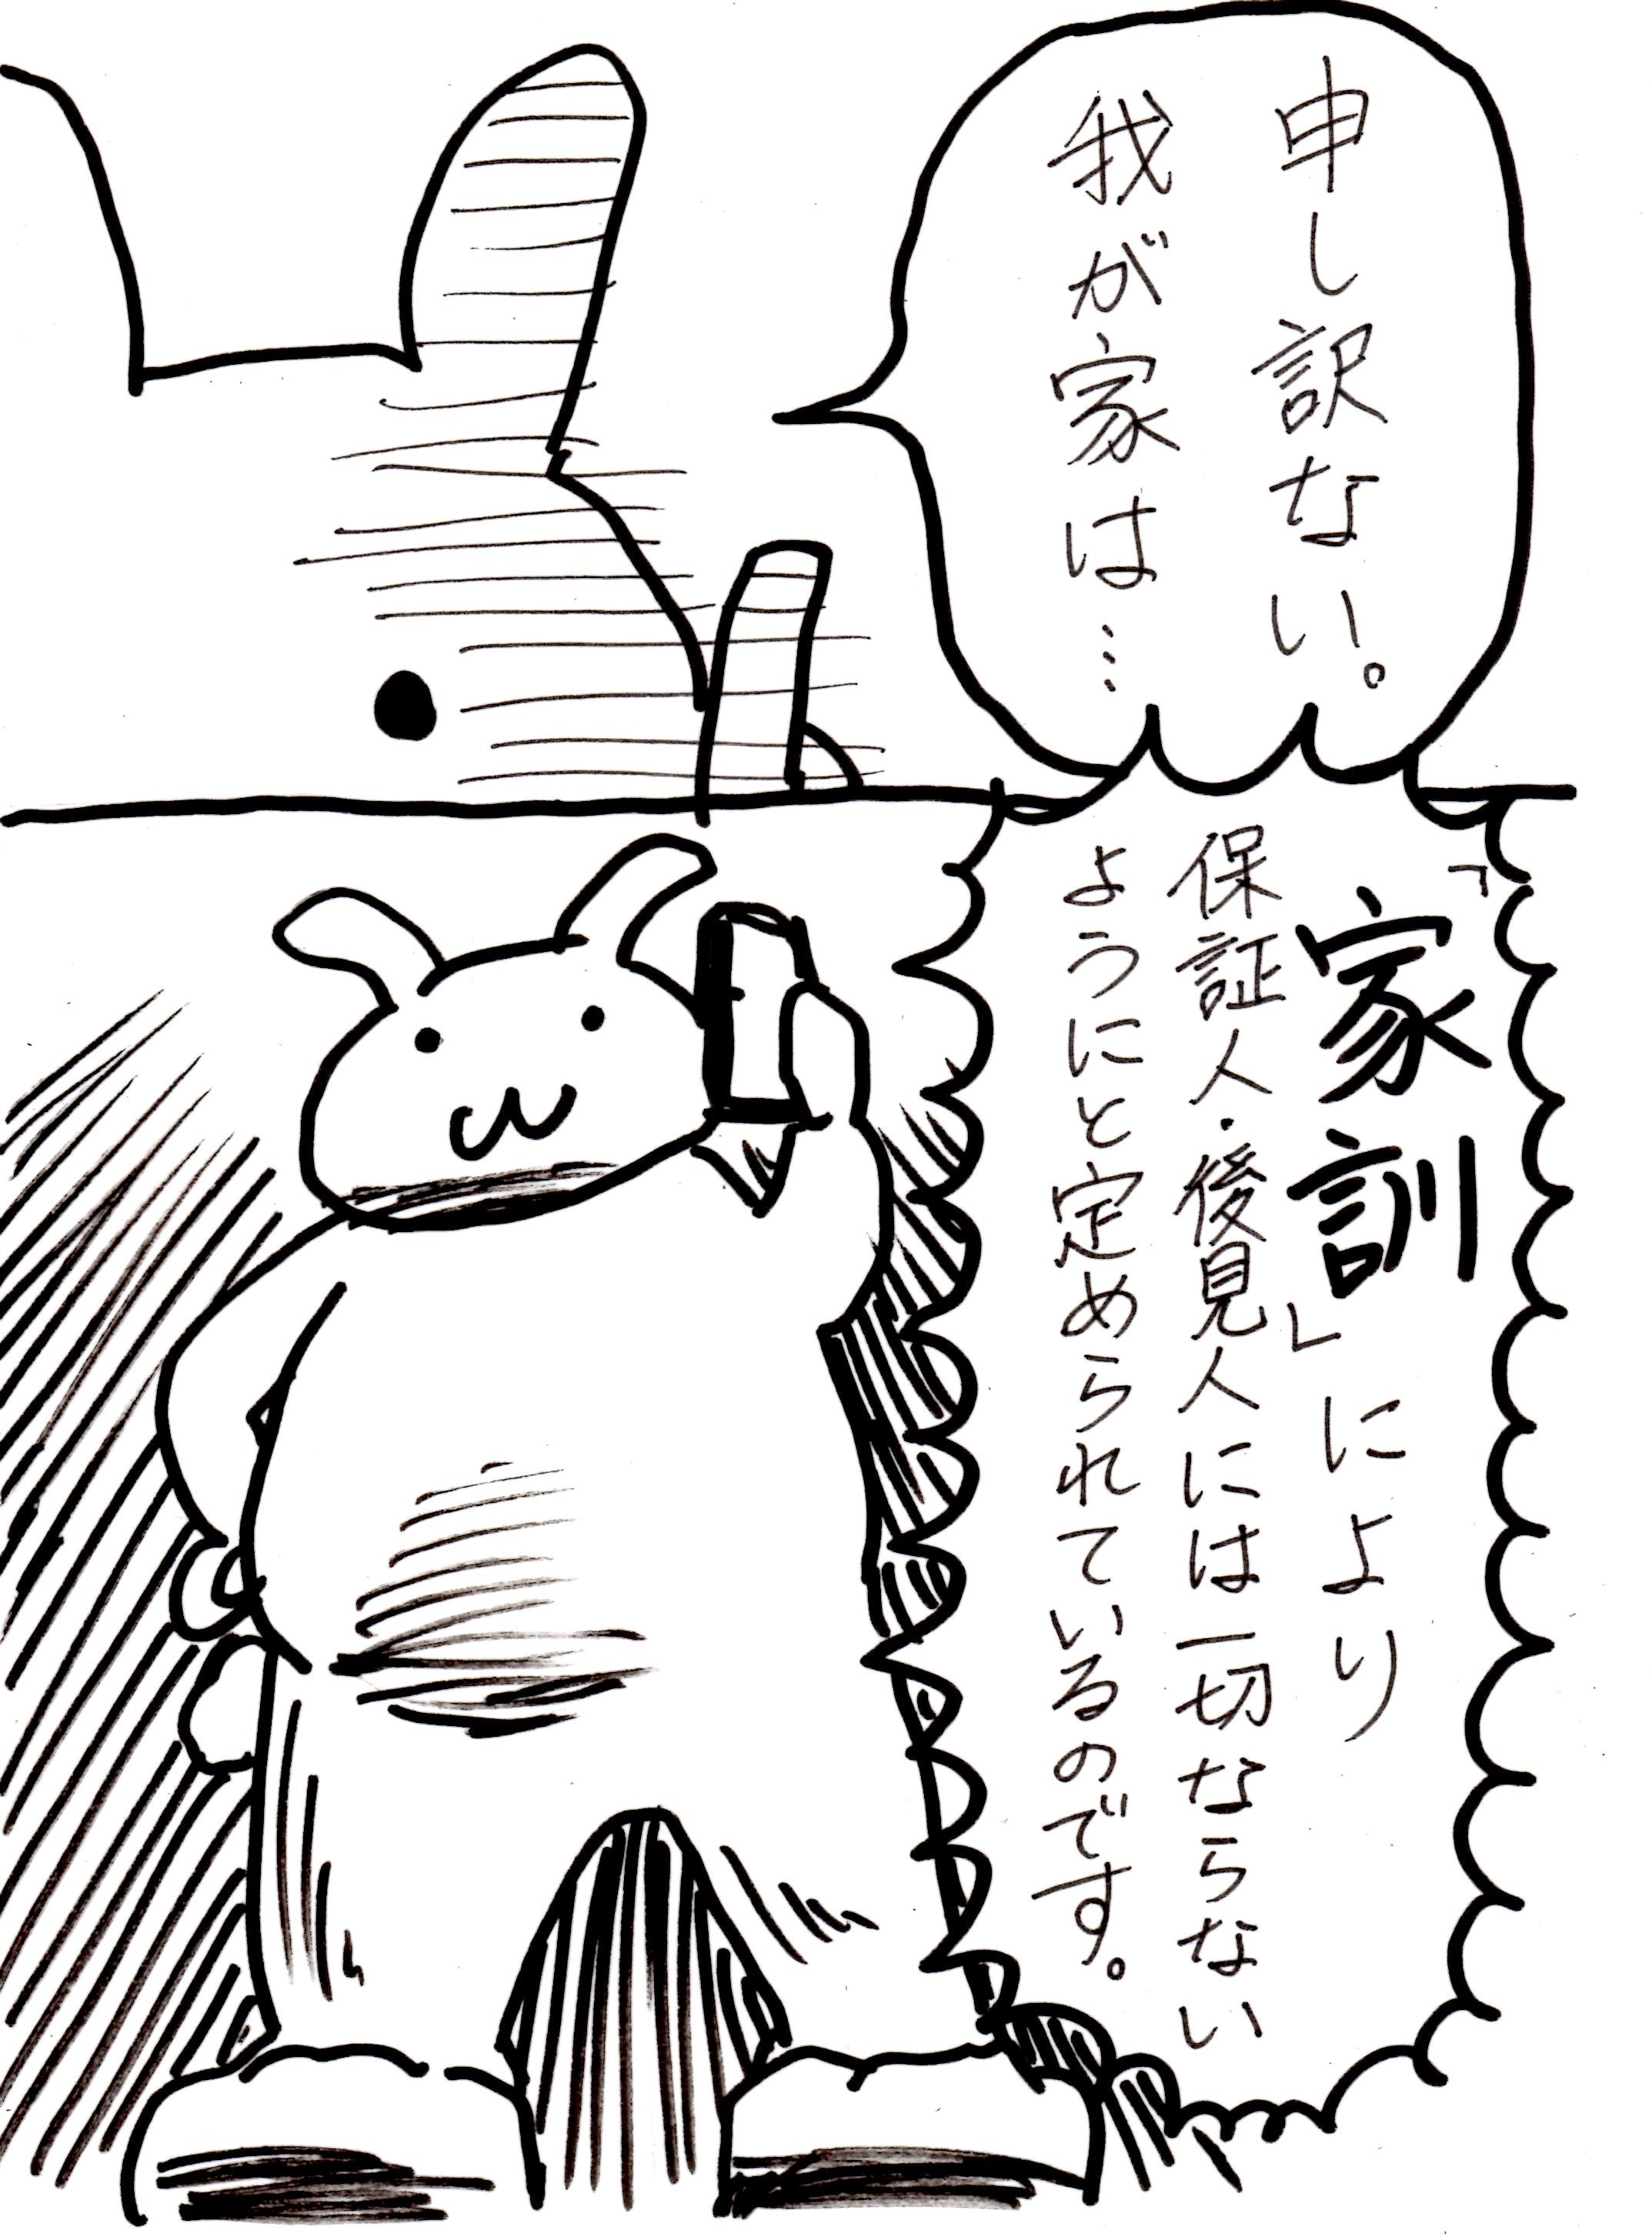 申し訳ない。
我が家は…
「家訓」により
保証人・後見人には一切ならない
ようにと定められているのです。